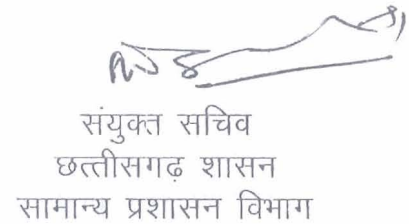 संयुक्त सचिव
छत्तीसगढ़ शासन
सामान्य प्रशासन विभाग